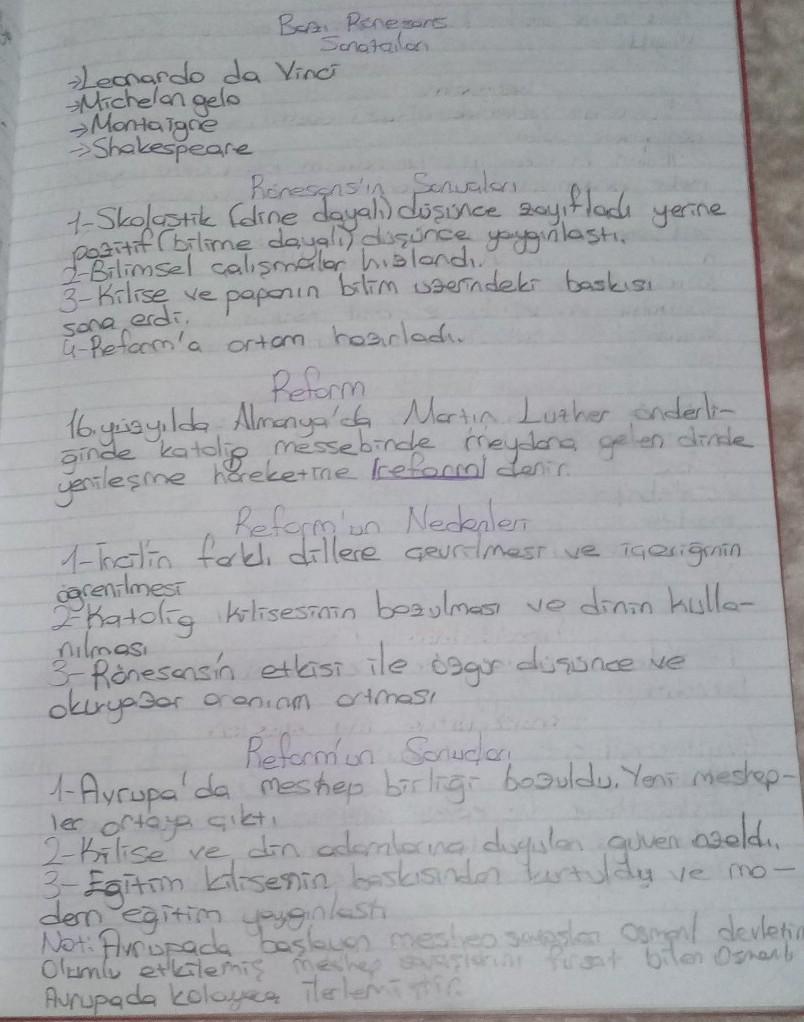 Bazı Rönesans
Sanatçıları
→Leonardo da Vinci
→Michelangelo
→Montaigne
→Shakespeare
Rönesans'ın Sonuçları
1-Skolastik (dine dayalı) düşünce zayıfladı yerine
pozitif (bilime dayalı) düşünce yaygınlaştı.
2-Bilimsel çalışmalar hızlandı.
3-Kilise ve papanın bilim üzerindeki baskısı
sona erdi.
4-Reform'a ortam hazırladı.
Reform
16.yüzyılda Almanya'da Martin Luther önderli-
ğinde katolig messebinde meydana gelen dinde
yenileşme hareketine reform denir.
Reform'un Nedenleri
1-İncil'in farklı dillere çevrilmesi ve içeriğinin
öğrenilmesi
2-Katolig kilisesinin bozulması ve dinin kulla-
nılması
3-Rönesansın etkisi ile özgür düşünce ve
okuryazar oranıam artması
Reform'un Sonuçları
1-Avrupa'da meshep birliği bozuldu. Yeni meshep-
ler ortaya çıktı
2-Kilise ve din adamlarına duyulan güven azaldı.
3-Eğitim kilisenin baskısından kurtuldu ve mo-
dern eğitim yaygınlaştı
Not: Avrupada başlayan meshep savaşları Osmanlı devletin
Olumlu etkilemiş meshep savaşlarını fırsat bilen Osmanlı
Avrupada kolayca ilerlemiştir.